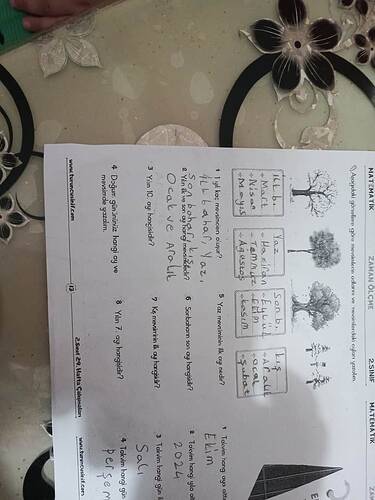 MATEMATİK
ZAMAN ÖLÇME
2.SINIF
1) Aşağıdaki görsellere göre mevsimlerin adlarını ve mevsimlerdeki ayları yazalım.
İLK b.
→Mart
→Nisan
→Mayıs
Yaz
→Haziran
→Temmuz
→Ağustos
Son b.
→Eylül
→Ekim
→Kasım
kış
→Aralık
→Ocak
→Şubat
1 1 yıl kaç mevsimden oluşur?
İlk bahar, Yaz,
Sonbahar, kış
2 Yılın ilk ve son ayı hangi mevsimdedir?
Ocak ve Aralık
3 Yılın 10. ayı hangisidir?
4 Doğum gününüz hangi ay ve
mevsimde yazalım.
5 Yaz mevsiminin ilk ayı nedir?
6 Sonbaharın son ayı hangisidir?
7 Kış mevsiminin ilk ayı hangisidir?
8 Yılın 7. ayı hangisidir?
www.turancuisif.com
13
2.Sınıf 29. Hafta Çalışmaları
MATEMATİK
1 Takvim hangi ayın
Ekim
2 Takvim hangi yıla
2024
3 Takvim hangi gün
Salı
4 Takvim hangi gün
perşem